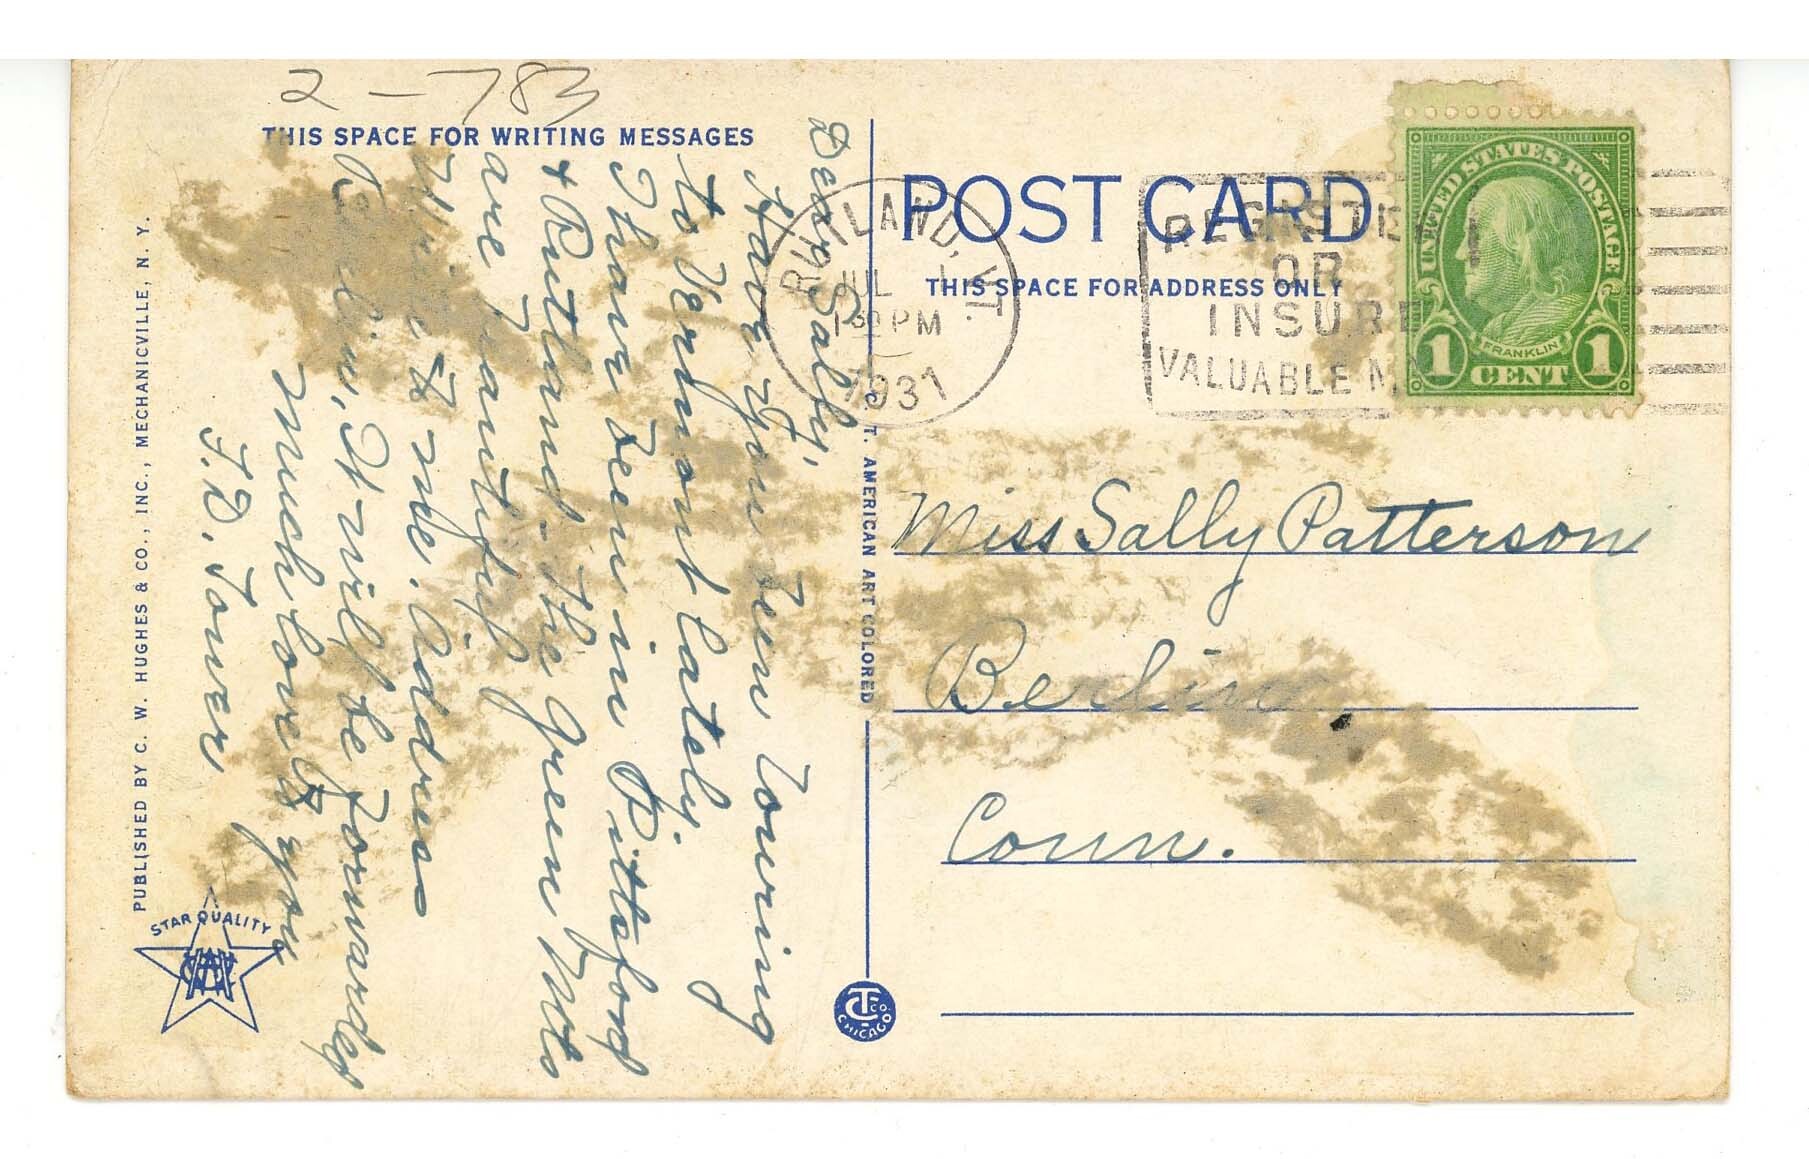 2-783
THIS SPACE FOR WRITING MESSAGES
Dear Sally,
Have you been touring
to Vermont lately.
I have been in Pittsford
+ Rutland - the Green Mts
are beautiful
Write to me. Address
Berlin, It will be forwarded
Much love to you
F.D. Toner
PUBLISHED BY C. W. HUGHES & CO., INC., MECHANICVILLE, N. Y.
STAR QUALITY
C. T. AMERICAN ART COLORED
CT CO
CHICAGO
POST CARD
THIS SPACE FOR ADDRESS ONLY
RUTLAND, VT.
JUL 1
1 30 PM
1931
REGISTER
OR
INSURE
VALUABLE M
UNITED STATES POSTAGE
FRANKLIN
1 CENT 1
Miss Sally Patterson
Berlin,
Conn.